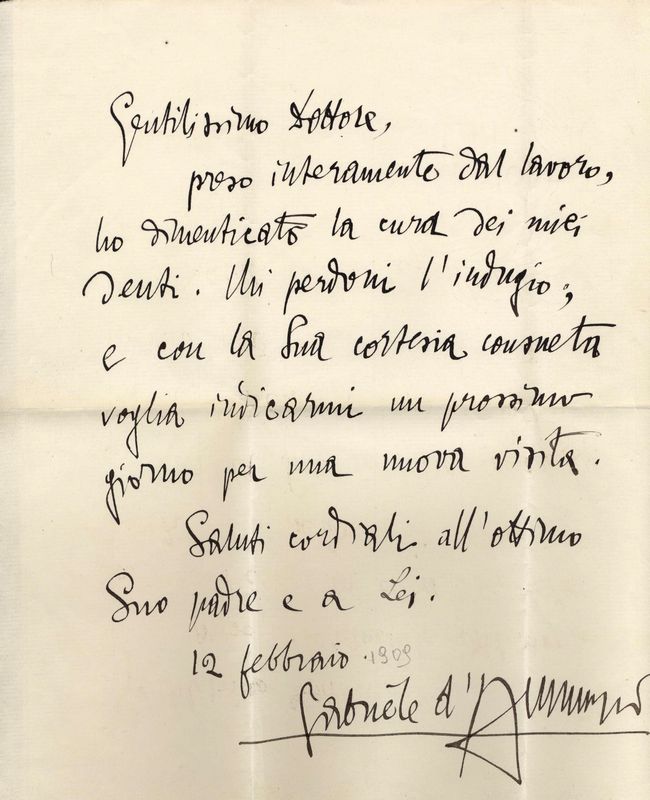 Gentilissimo Dottore,
preso interamente dal lavoro,
ho dimenticato la cura dei miei
denti. Mi perdoni l'indugio;
e con la Sua cortesia consueta
voglia indicarmi un prossimo
giorno per una nuova visita.
Saluti cordiali all'ottimo
Suo padre e a Lei.
12 febbraio. 1909
Gabriele d'Annunzio